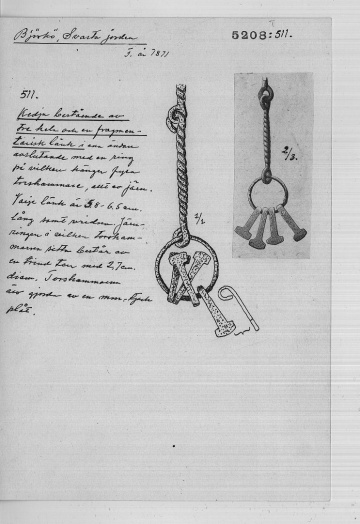 Björkö, Svarta jorden
5208:511.
F. år 1871
511.
Kedja bestående av
tre hela och en fragmen-
tarisk länk i ena ändan
avslutande med en ring
på vilken hänga fyra
torshammare, allt av järn.
Varje länk är 5.8-6,5 cm.
lång samt vriden. Järn-
ringen å vilken torsham-
marna sitta består av
en rund ten med 2,7 cm.
diam. Torshammarna
äro gjorda av en mm. tjock
plåt.
2/1
2/3.